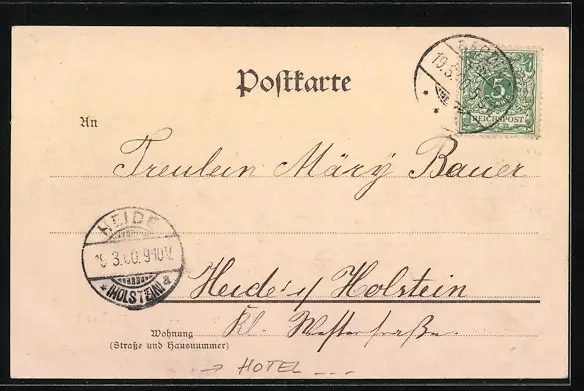 Postkarte
5
REICHSPOST
19.3.
An
Freulein Märÿ Bauer
HEIDE
19.3.00.9-10V.
*(HOLSTEIN)a
Heide i/ Holstein
Kl. Westerstraße.
Wohnung
(Straße und Hausnummer)
→ HOTEL ---